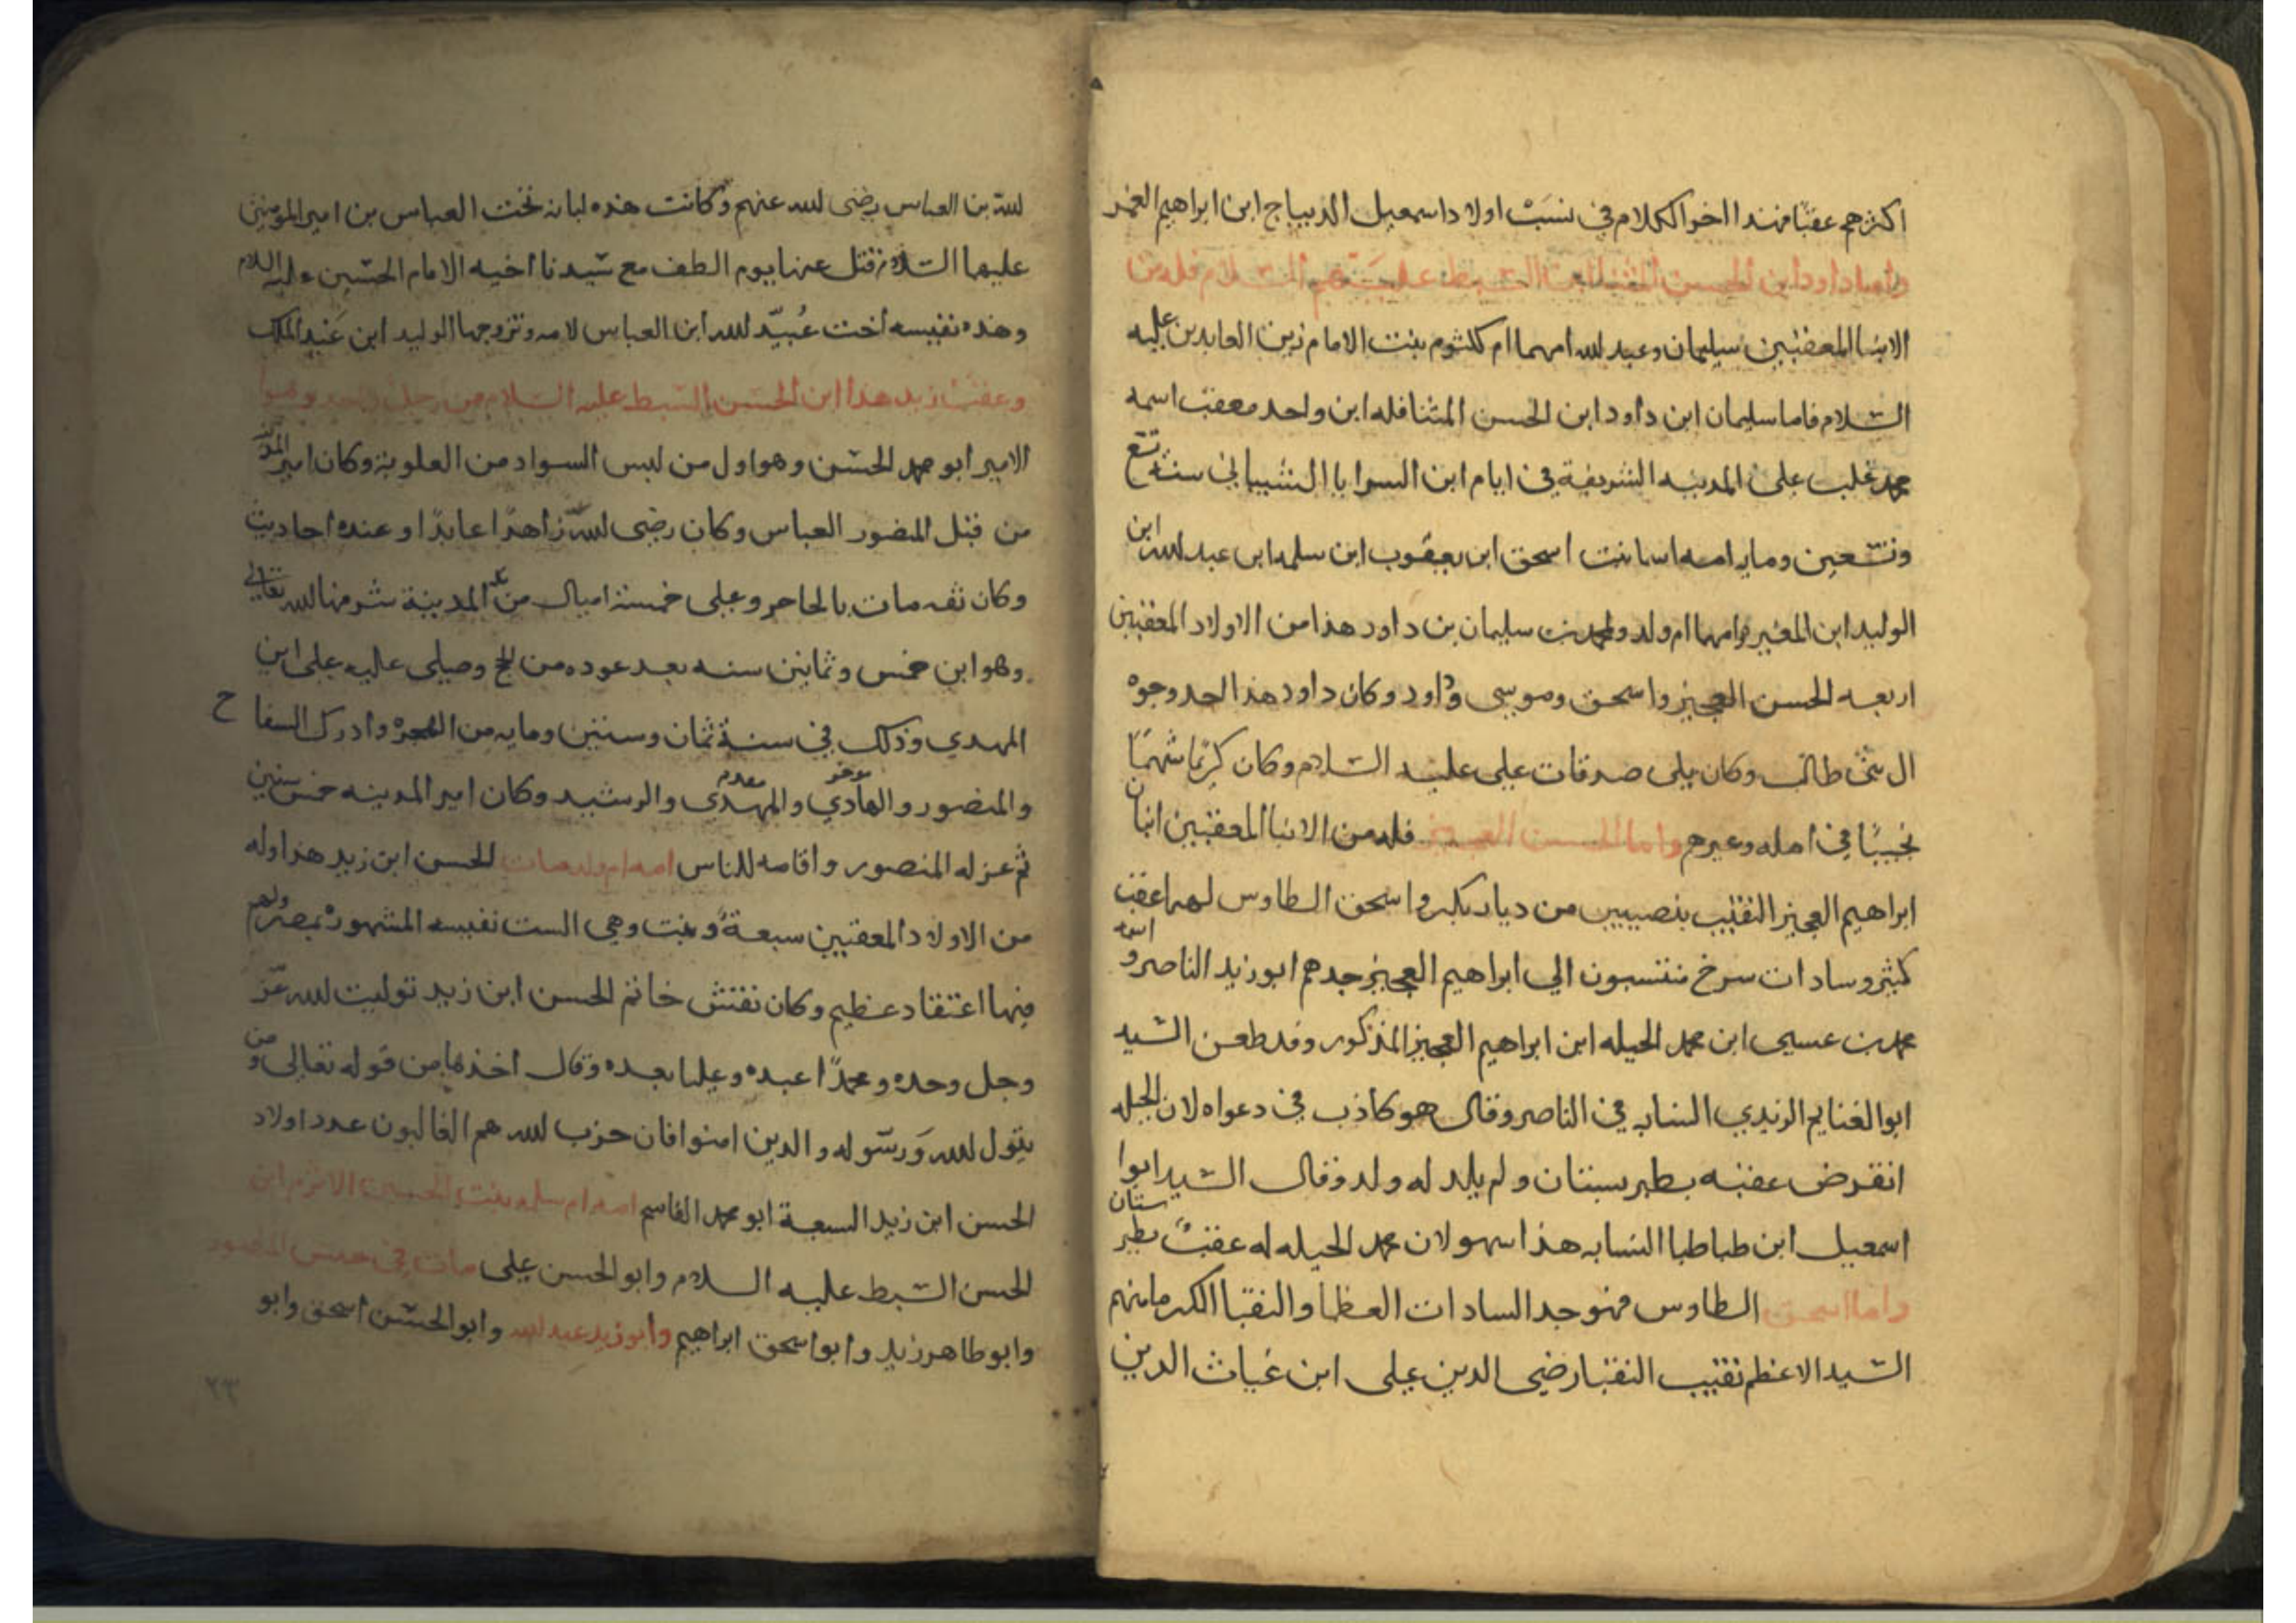 اكثرهم عقبا فهذا اخوا الكلام في نسب اولاد اسمعيل الديباج ابن ابراهيم الغمر
واما داود ابن الحسن المثنا ابن السبط عليهم السلام فله من
الابنا المعقبين سليمان وعبد لله امهما ام كلثوم بنت الامام زين العابدين عليه
السلام فاما سليمان ابن داود ابن الحسن المثنا فله ابن واحد معقب اسمه
محمد غلب على المدينه الشريفة في ايام ابن السرايا الشيباني سنة تسع
وتسعين ومايه امه اسما بنت اسحق ابن يعقوب ابن سلمه ابن عبد لله ابن
الوليد ابن المغيره وامهما ام ولد ولمحمد بن سليمان بن داود هذا من الاولاد المعقبين
اربعه الحسن العجيز واسحق وموسى وداود وكان داود هذا احد وجوه
ال بني طالب وكان يلي صدقات علي عليه السلام وكان كريما شهما
نجيبا في اهله وغيرهم واما الحسن العجيز فله من الابنا المعقبين ابنان
ابراهيم العجيز النقيب بنصيبين من ديار بكر واسحق الطاوس لهما عقب
كثير وسادات سرخ منتسبون الي ابراهيم العجيز جدهم ابو زيد الناصر و اسمه
محمد بن عيسى ابن محمد الحيله ابن ابراهيم العجيز المذكور وقد طعن السيد
ابو الغنايم الزيدي النسابه في الناصر وقال هو كاذب في دعواه لان الحيله
انقرض عقبه بطبرستان ولم يلد له ولد وقال السيد ابوا
اسمعيل ابن طباطبا النسابه هذا سهو لان محمد الحيله له عقب بطبر ستان
واما اسحق الطاوس فهو جد السادات العظما والنقبا الكرما منهم
السيد الاعظم نقيب النقبا رضي الدين علي ابن غياث الدين
لله بن العباس رضي لله عنهم وكانت هذه لبانه تحت العباس بن امير المومنين
عليهما السلام قتل عنها يوم الطف مع سيدنا اخيه الامام الحسين عليه السلام
وهذه نفيسه اخت عبيد لله ابن العباس لامه وتزوجها الوليد ابن عبد الملك
وعقب زيد هذا ابن الحسن السبط عليه السلام من رجل واحد وهوا
الامير ابو محمد الحسن وهو اول من لبس السواد من العلوية وكان امير المدينه
من قبل المنصور العباس وكان رضي لله زاهدا عابدا وعنده احاديث
وكان ثقه مات بالحاجر وعلى خمسة اميال من المدينة شرفها لله تعالى
وهو ابن خمس وثمانين سنه بعد عوده من الحج وصلى عليه علي ابن
المهدي وذلك في سنة ثمان وستين ومايه من الهجرة وادرك السفاح
والمنصور والهادي موخر والمهدي مقدم والرشيد وكان امير المدينه خمس سنين
ثم عزله المنصور واقامه للناس امه ام ولد للحسن ابن زيد هذا وله
من الاولاد المعقبين سبعة وبنت وهي الست نفيسه المشهوره بمصر ولهم
فيها اعتقاد عظيم وكان نقش خاتم الحسن ابن زيد توليت لله عز
وجل وحده ومحمدا عبده وعليا بعده وقال اخذها من قوله تعالى ومن
يتول لله ورسوله والدين امنوا فان حزب لله هم الغالبون عدد اولاد
الحسن ابن زيد السبعة ابو محمد القاسم امه ام سلمه بنت الحسين الاثرم ابن
الحسن السبط عليه السلام وابو الحسن علي مات في حبس المنصور
وابو طاهر زيد وابو اسحق ابراهيم وابو زيد عبد لله وابو الحسن اسحق وابو
٢٣